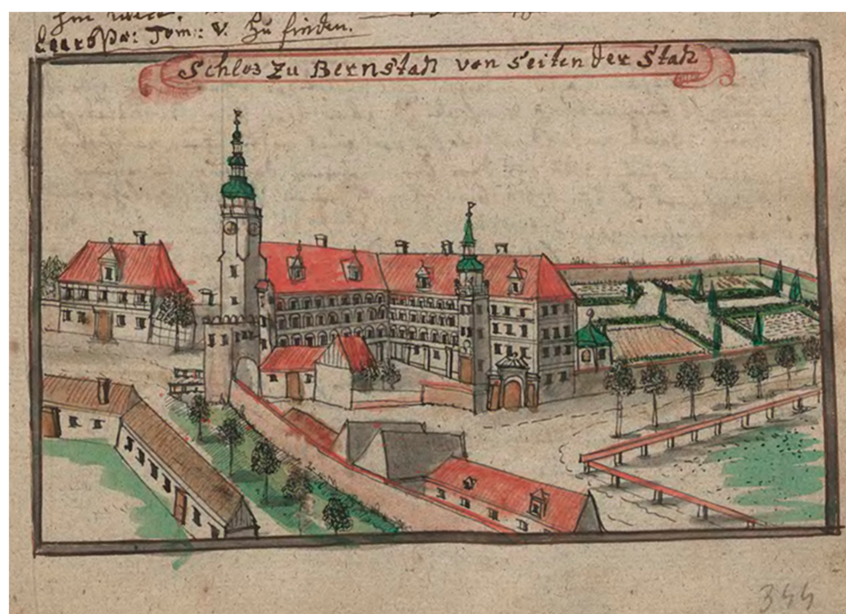 Tom: V. Zu finden.
Schloß zu Bernstatt von seiten der Statt
344